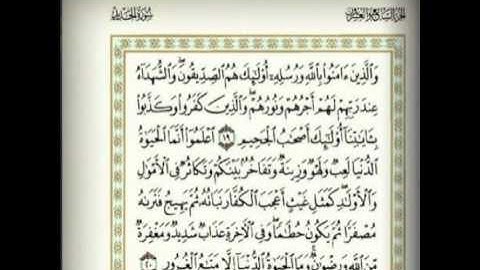 سورة الحديد
الجزء السابع والعشرون
والذين ءامنوا بالله ورسله أولئك هم الصديقون والشهداء
عند ربهم لهم أجرهم ونورهم والذين كفروا وكذبوا
بئايتنا أولئك أصحب الجحيم ١٩ اعلموا أنما الحيوة
الدنيا لعب ولهو وزينة وتفاخر بينكم وتكاثر في الأمول
والأولد كمثل غيث أعجب الكفار نباته ثم يهيج فترىه
مصفرا ثم يكون حطما وفي الأخرة عذاب شديد ومغفرة
من الله ورضون وما الحيوة الدنيا إلا متع الغرور ٢٠